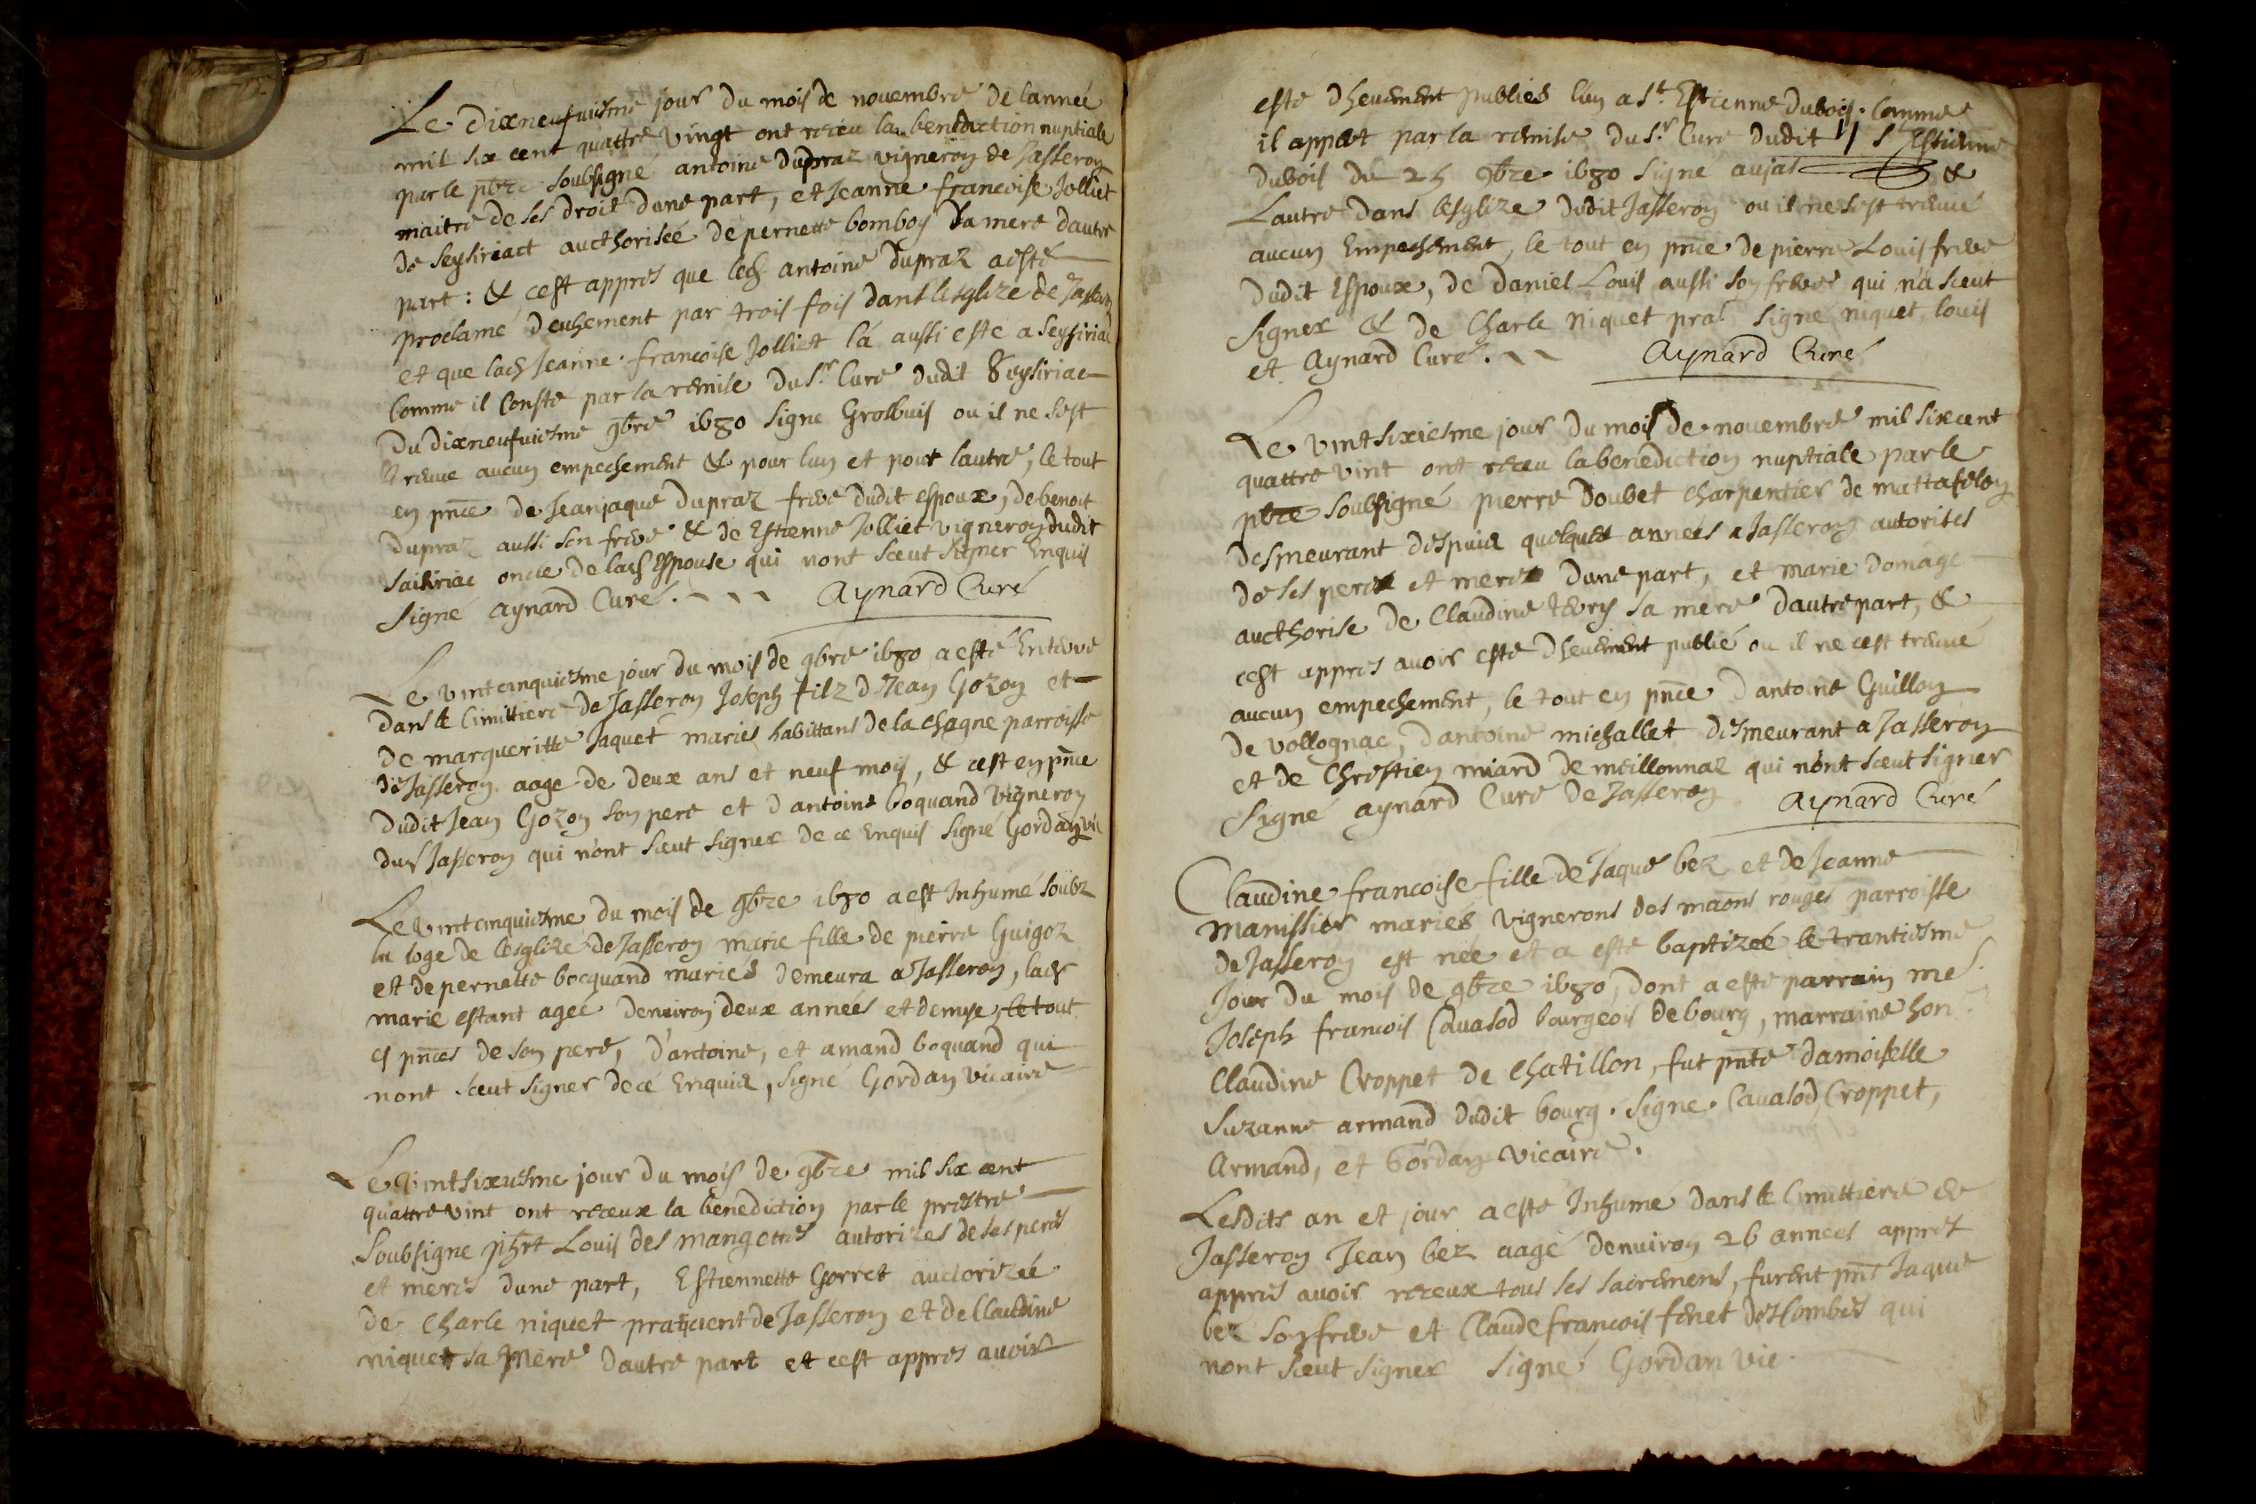 Le dixneufuiesme jour du mois de nouembre de lannee
mil six cent quattre vingt ont receu la benediction nuptiale
par le pbre soubsigné antoine dupraz vigneron de Jasseron
maitre de ses droit dune part, et Jeanne francoise Jolliet
de Seysiriact aucthorisée de pernette bomboy sa mere dautre
part : & cest appres que led antoine dupraz a esté
proclamé deuhement par trois fois dans lesglize de Jasseron
et que lad Jeanne francoise Jolliet la aussi este a Seysiriac
Comme il conste par la remise du Sr Curé dudit Seysiriac
du dixneufuiesme 9bre 1680 signe Grosbuis ou il ne sest
treuue aucun empechement & pour lun et pour lautre, le tout
en pnce de Jeanjaque dupraz frere dudit espoux, de benoit
dupraz aussi son frere & de Estienne Jolliet vigneron dudit
saisiriac oncle de lad Espouse qui nont sceut signer Enquis
Signé aynard Curé. Aynard Curé
Le vintcinquiesme jour du mois de 9bre 1680 a esté Enterré
dans le cimittiere de Jasseron Joseph filz d Jean Gozon et
de margueritte Jaquet mariés habittans de la chagne parroisse
de Jasseron aagé de deux ans et neuf mois, & cest en pnce
dudit Jean Gozon son pere et d antoine boquand vigneron
dud Jasseron qui n'ont sceut signer de ce Enquis signé Gordan vic
Le vintcinquiesme du mois de 9bre 1680 a est Inhumé soubz
la loge de lesglize de Jasseron marie fille de pierre Guigoz
et de pernette bocquand mariés demeura a Jasseron, lad
marie estant agée denuiron deux années et demye, le tout
en pnces de son pere, d'antoine, et amand boquand qui
nont sceut signer de cé Enquis, signé Gordan vicaire
Le vintsixiesme jour du mois de 9bre mil six cent
quattre vint ont receux la benediction par le prestre
Soubsigne phrt Louis des mangettes autorizes de ses peres
et meres dune part, Estiennette Gorret auctorizée
de Charle niquet praticient de Jasseron et de Claudine
niquet sa mere dautre part et cest appres auoir
este dheuement publiés lun a St Estienne dubois. Comme
il appert par la remise du Sr Curé dudit St Estienne
dubois du 25 9bre 1680 signe aujas &
Lautre dans lesglize dudit Jasseron ou il ne sest treuué
aucun Empechement, le tout en pnce de pierre Louis frere
dudit Espoux, de daniel Louis aussi son frere qui na sceut
signer & de Charle niquet prat signé niquet, louis
et Aynard Curé. Aynard Curé
Le vintsixiesme jour du mois de nouembre mil six cent
quattre vint ont receu la benediction nuptiale par le
pbre soubsigné pierre Doubet charpentier de mattafelon
desmeurant despuis quelques années a Jasseron autorites
de ses peres et meres dune part, et marie domage
aucthorise de Claudine tery sa mere dautre part, &
cest appres auoir este dheuement publié ou il ne cest treuué
aucun empechement, le tout en pnce d antoine Guillon
de vollognac, d antoine michallet desmeurant a Jasseron
et de Chrestien miard de meillonnaz qui n'ont sceut signer
Signé aynard Curé de Jasseron Aynard Curé
Claudine francoise fille de Jaque bez et de Jeanne
manissier mariés vignerons des maons rouges parroisse
de Jasseron est née et a este baptizeé le trantiesme
Jour du mois de 9bre 1680, dont a esté parrain mes.
Joseph francois Cauasod bourgeois de bourg, marraine hon.
Claudine Croppet de Chatillon, fut pnte damoiselle
Suzanne armand dudit bourg. Signe Cauasod, Croppet,
Armand, et Gordan vicaire.
Lesdits an et jour a esté Inhumé dans le cimittiere de
Jasseron Jean bez aagé denuiron 26 années appres
appres auoir receux tous ses sacrements, furent pnt Jaque
bez son frere et Claude francois fenet des Combes qui
nont sceut signer Signé Gordan vic.